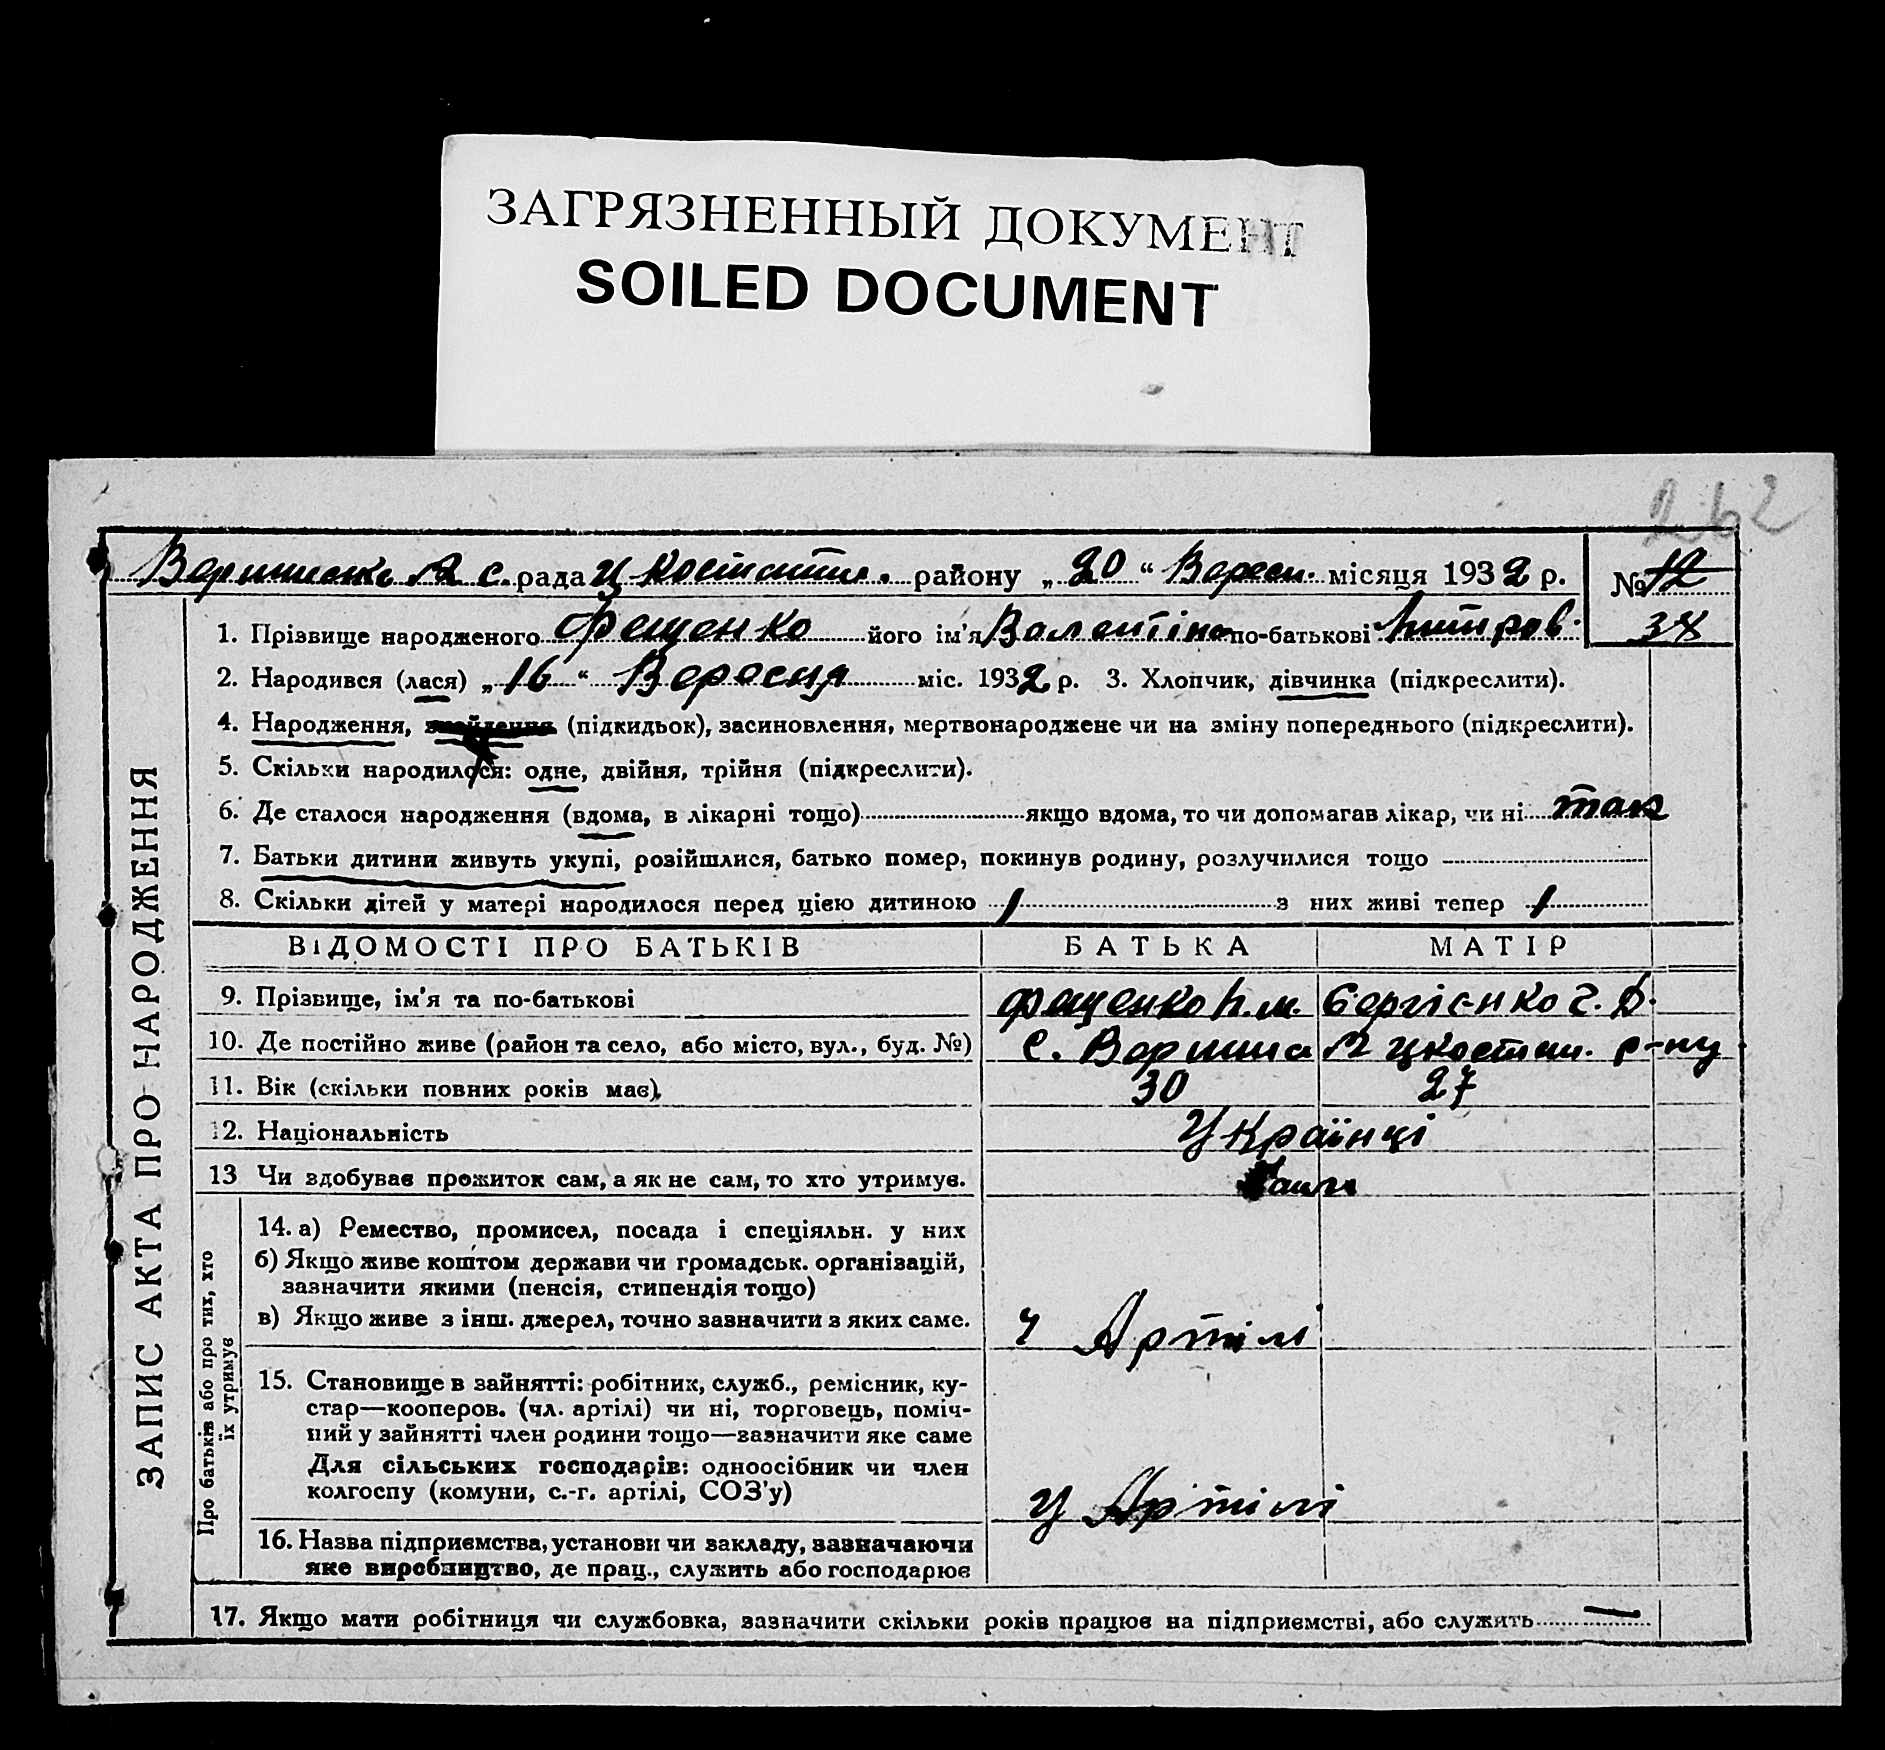 ЗАГРЯЗНЕННЫЙ ДОКУМЕНТ
SOILED DOCUMENT
262
с. рада району „20“ Вересн. місяця 1932 р. № 12
38
1. Прізвище народженого Фещенко його ім'я Валентіна по-батькові
2. Народився (лася) „16“ Вересня міс. 1932 р. 3. Хлопчик, дівчинка (підкреслити).
4. Народження, знайдення (підкидьок), засиновлення, мертвонароджене чи на зміну попереднього (підкреслити).
5. Скільки народилося: одне, двійня, трійня (підкреслити).
6. Де сталося народження (вдома, в лікарні тощо) якщо вдома, то чи допомагав лікар, чи ні так
7. Батьки дитини живуть укупі, розійшлися, батько помер, покинув родину, розлучилися тощо
8. Скільки дітей у матері народилося перед цією дитиною 1 з них живі тепер 1
ВІДОМОСТІ ПРО БАТЬКІВ БАТЬКА МАТІР
9. Прізвище, ім'я та по-батькові Фещенко Сергієнко
10. Де постійно живе (район та село, або місто, вул., буд. №) с. Вершина р-ну
11. Вік (скільки повних років має). 30 27
12. Національність Українці
13 Чи здобуває прожиток сам, а як не сам, то хто утримує. Сами
14. а) Ремество, промисел, посада і спеціяльн. у них
б) Якщо живе коштом держави чи громадськ. організацій,
зазначити якими (пенсія, стипендія тощо)
в) Якщо живе з інш. джерел, точно зазначити з яких саме. У Артілі
15. Становище в зайнятті: робітник, служб., ремісник, ку-
стар—кооперов. (чл. артілі) чи ні, торговець, поміч-
ний у зайнятті член родини тощо—зазначити яке саме
Для сільських господарів: одноосібник чи член
колгоспу (комуни, с.-г. артілі, СОЗ'у) У Артілі
16. Назва підприємства, установи чи закладу, зазначаючи
яке виробництво, де прац., служить або господарює
17. Якщо мати робітниця чи службовка, зазначити скільки років працює на підприємстві, або служить —
ЗАПИС АКТА ПРО НАРОДЖЕННЯ
Про батьків або про тих, хто
їх утримує